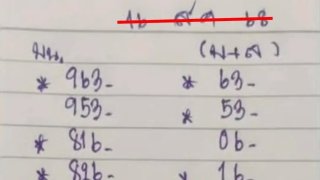 16 ส.ค 68
บน. (บ+ล)
* 963- * 63-
953- * 53-
* 816- 06-
* 826- * 16-